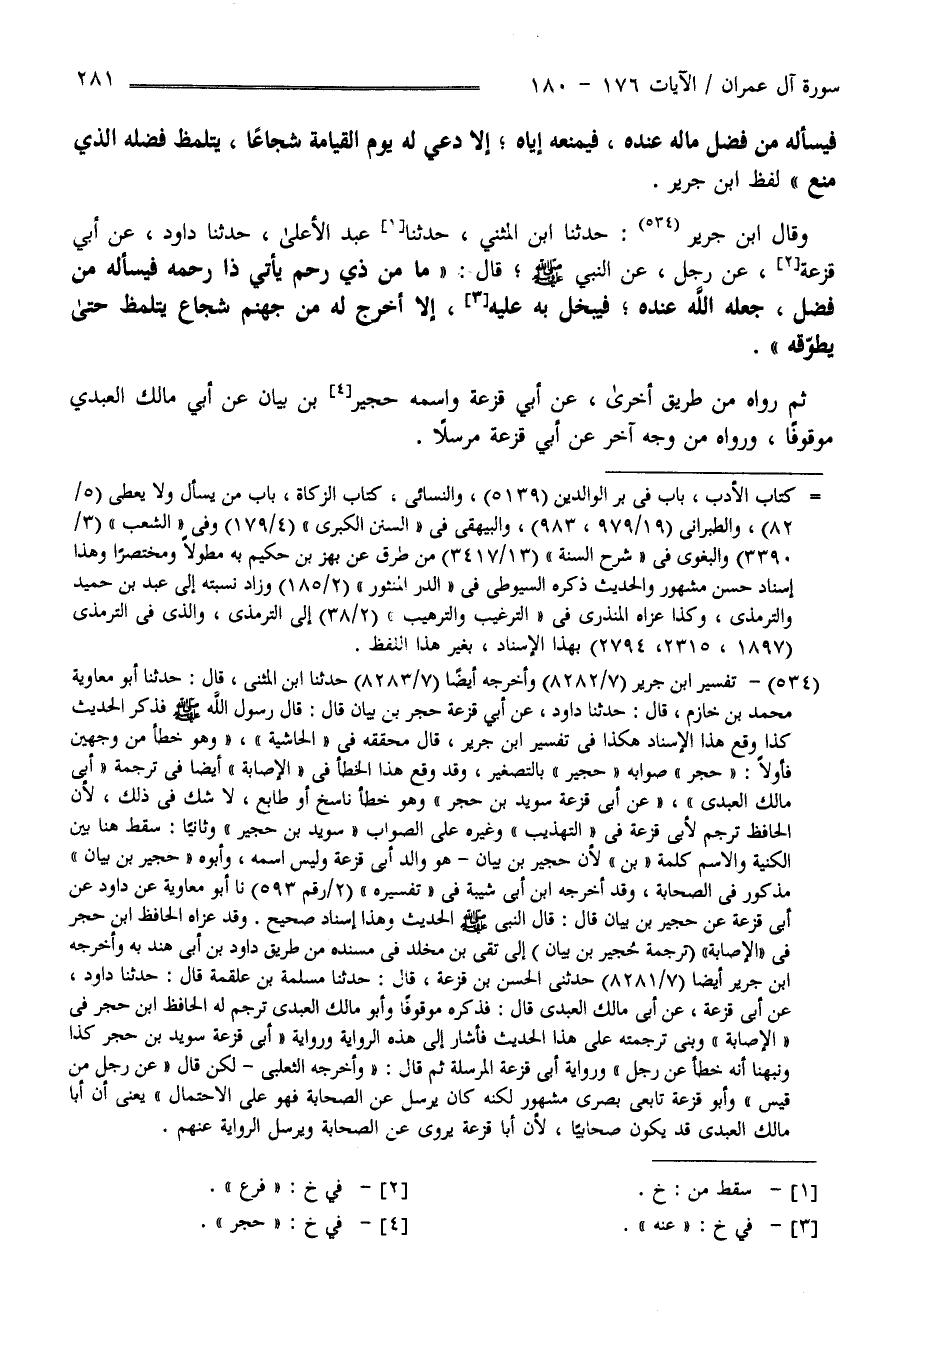 سورة آل عمران / الآيات ١٧٦ – ١٨٠ ٢٨١
فيسأله من فضل ماله عنده ، فيمنعه إياه ؛ إلا دعي له يوم القيامة شجاعًا ، يتلمظ فضله الذي
منع » لفظ ابن جرير .
وقال ابن جرير (٥٣٤) : حدثنا ابن المثني ، حدثنا[١] عبد الأعلىٰ ، حدثنا داود ، عن أبي
قزعة[٢] ، عن رجل ، عن النبي ﷺ ؛ قال : « ما من ذي رحم يأتي ذا رحمه فيسأله من
فضل ، جعله اللَّه عنده ؛ فيبخل به عليه[٣] ، إلا أخرج له من جهنم شجاع يتلمظ حتىٰ
يطوّقه » .
ثم رواه من طريق أخرىٰ ، عن أبي قزعة واسمه حجير[٤] بن بيان عن أبي مالك العبدي
موقوفًا ، ورواه من وجه آخر عن أبي قزعة مرسلًا .
= كتاب الأدب ، باب فى بر الوالدين (٥١٣٩) ، والنسائى ، كتاب الزكاة ، باب من يسأل ولا يعطى (٥/
٨٢) ، والطبرانى (٩٧٩/١٩ ، ٩٨٣) ، والبيهقى فى « السنن الكبرى » (١٧٩/٤) وفى « الشعب » (٣/
٣٣٩٠) والبغوى فى « شرح السنة » (٣٤١٧/١٣) من طرق عن بهز بن حكيم به مطولاً ومختصرًا وهذا
إسناد حسن مشهور والحديث ذكره السيوطى فى « الدر المنثور » (١٨٥/٢) وزاد نسبته إلى عبد بن حميد
والترمذى ، وكذا عزاه المنذرى فى « الترغيب والترهيب » (٣٨/٢) إلى الترمذى ، والذى فى الترمذى
(١٨٩٧ ، ٢٣١٥، ٢٧٩٤) بهذا الإسناد ، بغير هذا اللفظ .
(٥٣٤) – تفسير ابن جرير (٨٢٨٢/٧) وأخرجه أيضًا (٨٢٨٣/٧) حدثنا ابن المثنى ، قال : حدثنا أبو معاوية
محمد بن خازم ، قال : حدثنا داود ، عن أبي قزعة حجر بن بيان قال : قال رسول اللَّه ﷺ فذكر الحديث
كذا وقع هذا الإسناد هكذا فى تفسير ابن جرير ، قال محققه فى « الحاشية » ، « وهو خطأ من وجهين
فأولاً : « حجر » صوابه « حجير » بالتصغير ، وقد وقع هذا الخطأ فى « الإصابة » أيضا فى ترجمة « أبى
مالك العبدى » ، « عن أبى قزعة سويد بن حجر » وهو خطأ ناسخ أو طابع ، لا شك فى ذلك ، لأن
الحافظ ترجم لأبى قزعة فى « التهذيب » وغيره على الصواب « سويد بن حجير » وثانيًا : سقط هنا بين
الكنية والاسم كلمة « بن » لأن حجير بن بيان – هو والد أبى قزعة وليس اسمه ، وأبوه « حجير بن بيان »
مذكور فى الصحابة ، وقد أخرجه ابن أبى شيبة فى « تفسيره » (٢/رقم ٥٩٣) نا أبو معاوية عن داود عن
أبى قزعة عن حجير بن بيان قال : قال النبى ﷺ الحديث وهذا إسناد صحيح . وقد عزاه الحافظ ابن حجر
فى «الإصابة» (ترجمة حُجير بن بيان ) إلى تقى بن مخلد فى مسنده من طريق داود بن أبى هند به وأخرجه
ابن جرير أيضا (٨٢٨١/٧) حدثنى الحسن بن قزعة ، قال : حدثنا مسلمة بن علقمة قال : حدثنا داود ،
عن أبى قزعة ، عن أبى مالك العبدى قال : فذكره موقوفًا وأبو مالك العبدى ترجم له الحافظ ابن حجر فى
« الإصابة » وبنى ترجمته على هذا الحديث فأشار إلى هذه الرواية ورواية « أبى قزعة سويد بن حجر كذا
ونبهنا أنه خطأ عن رجل » ورواية أبى قزعة المرسلة ثم قال : « وأخرجه الثعلبى – لكن قال « عن رجل من
قيس » وأبو قزعة تابعى بصرى مشهور لكنه كان يرسل عن الصحابة فهو على الاحتمال » يعنى أن أبا
مالك العبدى قد يكون صحابيًا ، لأن أبا قزعة يروى عن الصحابة ويرسل الرواية عنهم .
[١] – سقط من : خ . [٢] – في خ : « فرع » .
[٣] – في خ : « عنه » . [٤] – في خ : « حجر » .